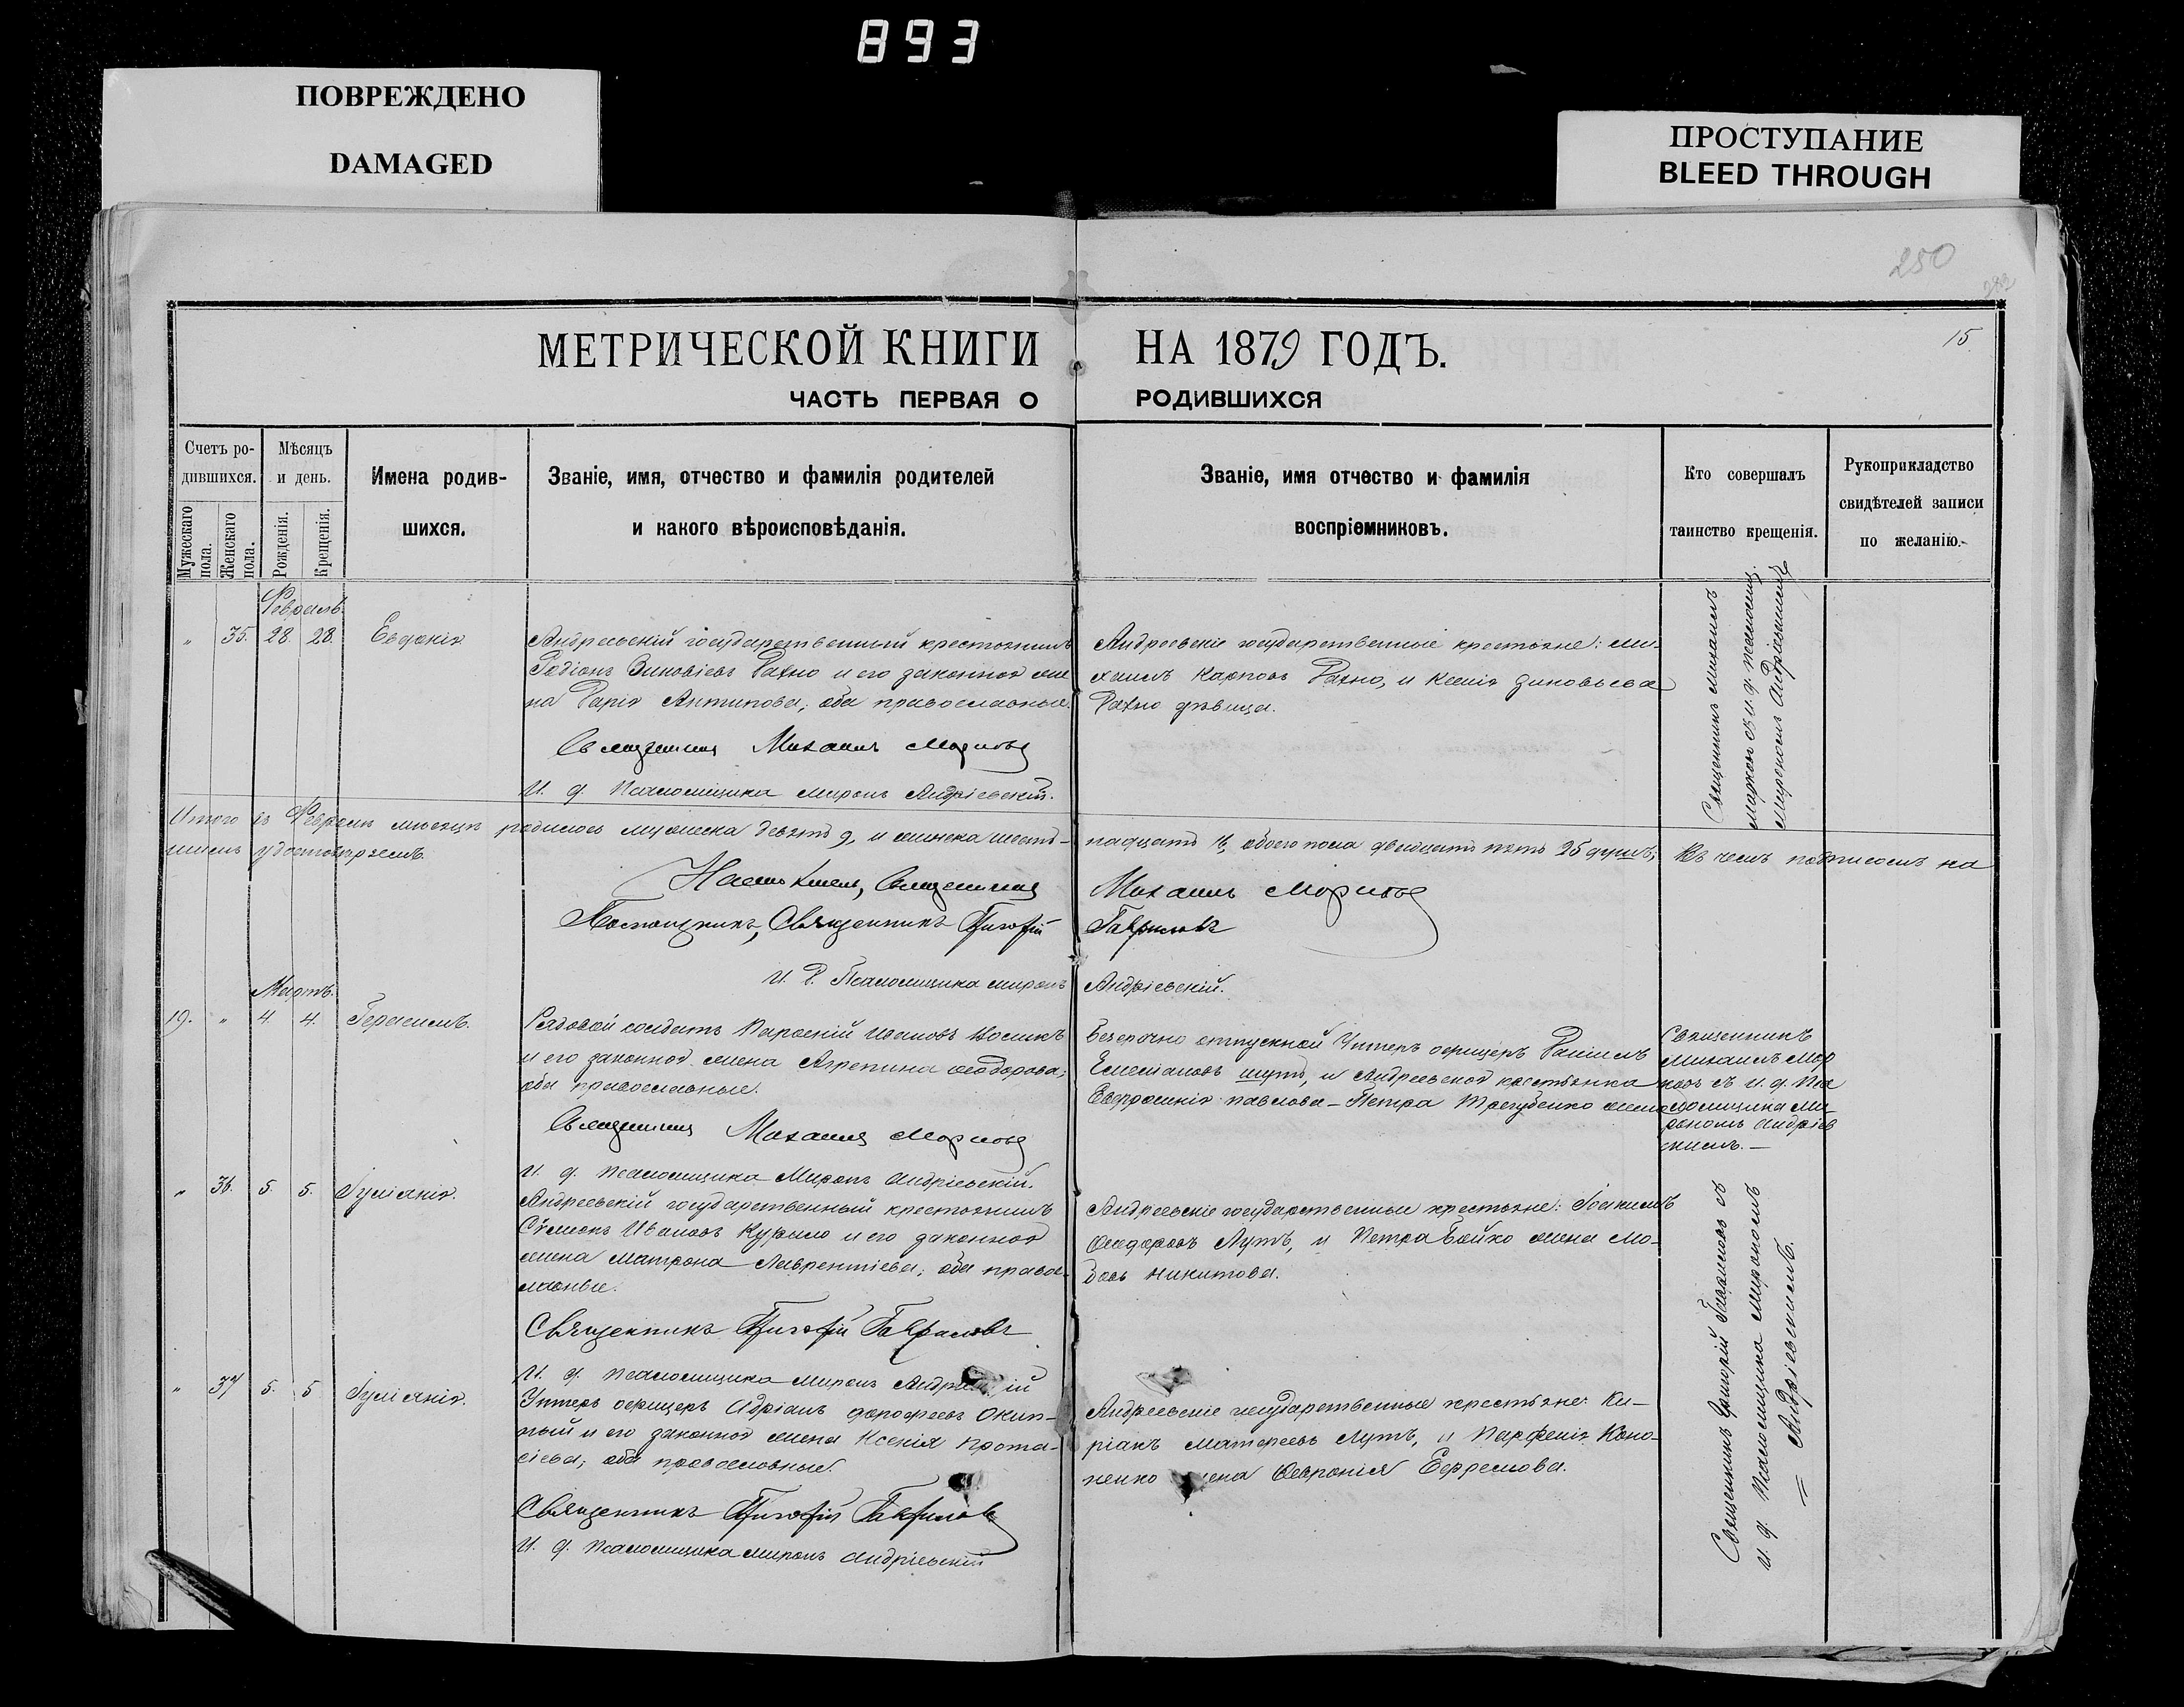 893
ПОВРЕЖДЕНО
DAMAGED
ПРОСТУПАНИЕ
BLEED THROUGH
250
15
МЕТРИЧЕСКОЙ КНИГИ НА 1879 ГОДЪ.
ЧАСТЬ ПЕРВАЯ О РОДИВШИХСЯ
Счетъ ро-
дившихся.
Мужескаго
пола.
Женскаго
пола.
Мѣсяцъ
и день.
Рожденія.
Крещенія.
Имена родив-
шихся.
Званіе, имя, отчество и фамилія родителей
и какого вѣроисповѣданія.
Званіе, имя отчество и фамилія
воспріемниковъ.
Кто совершалъ
таинство крещенія.
Рукоприкладство
свидѣтелей записи
по желанію.
Февраль.
" 35. 28. 28. Евдокія
Андреевскій государственный крестьянинъ
Родіонъ Зиновіевъ Рахно и его законная же
на Дарія Антипова, оба православные.
Священникъ Михаилъ
И. д. Псаломщика Миронъ Андріевскій.
Андреевскіе государственные крестьяне: Ми-
хаилъ Карповъ Рахно, и Ксенія Зиновьева
Рахно дѣвица.
Священникъ Михаилъ
съ и. д. псаломщ.
Мирономъ Андріевскимъ
Итого въ Февралѣ мѣсяцѣ родилось мужеска девять 9, и женска шест-
надцать 16, обоего пола двадцать пять 25 душъ, Въ чемъ подписомъ на
шимъ удостовѣряемъ.
Священникъ Михаилъ
Священникъ Григорій Гавриловъ
И. Д. Псаломщика Миронъ Андріевскій.
Мартъ.
19. " 4. 4. Герасимъ.
Рядовой солдатъ Ивановъ Носикъ
и его законная жена Агрепина Феодорова;
оба православные.
Священникъ Михаилъ
И. д. Псаломщика Миронъ Андріевскій.
Безсрочно отпускной Унтеръ офицеръ Даніилъ
Емеліановъ Шутъ, и Андреевская крестьянка
Евфросинія Павлова - Петра Трегубенко жена
Священникъ
Михаилъ Мор
ковъ съ И. д. Пса
ломщика Ми-
рономъ Андріев
скимъ. —
" 36. 5. 5. Іуліанія.
Андреевскій государственный крестьянинъ
Сѵмеонъ Ивановъ Курыло и его законная
жена Матрона Лаврентіева; оба правос-
лавные.
Священникъ Григорій Гавриловъ
И. д. Псаломщика Миронъ
Андреевскіе государственные крестьяне: Іоакимъ
Феодоровъ Лутъ, и Петра Бойко жена
Никитова.
" 37 5. 5 Іуліанія.
Унтеръ офицеръ Адріанъ Дорофеевъ
и его законная жена Ксенія Прота-
сіева; оба православные.
Священникъ Григорій Гавриловъ
И. д. Псаломщика Миронъ Андріевскій
Андреевскіе государственные крестьяне: Ки-
ріакъ Матфеевъ Лутъ, и Парфенія Коно-
ненко Февронія Ефремова.
Священникъ Григорій Гавриловъ съ
И. д. Псаломщика Мирономъ
= Андріевскимъ.